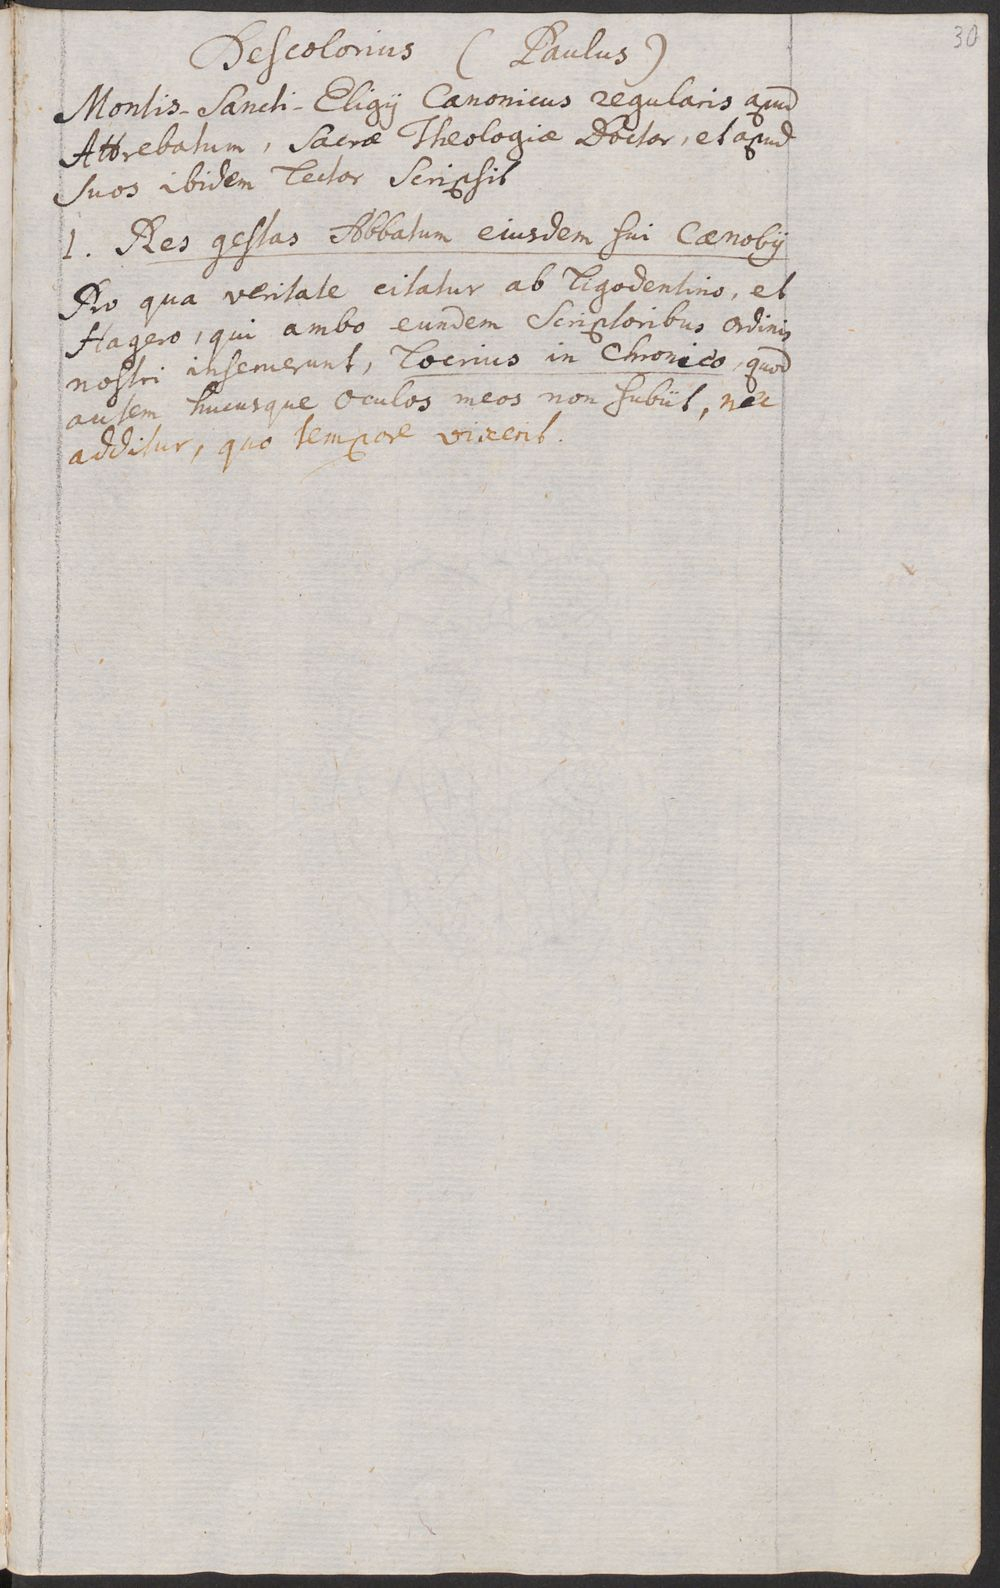 30
Descolorius ( Paulus )
Montis-Sancti-Eligij Canonicus regularis apud
Attrebatum, Sacræ Theologiæ Doctor, et apud
suos ibidem Lector Scripsit
1. Res gestas Abbatum eiusdem sui Cænobij
Pro qua veritate citatur ab Ligodentino, et
Hagero, qui ambo eundem Scriptoribus ordinis
nostri inseruerunt, Locrius in Chronico, quod
autem hucusque oculos meos non subiit, nec
additur, quo tempore vixerit.